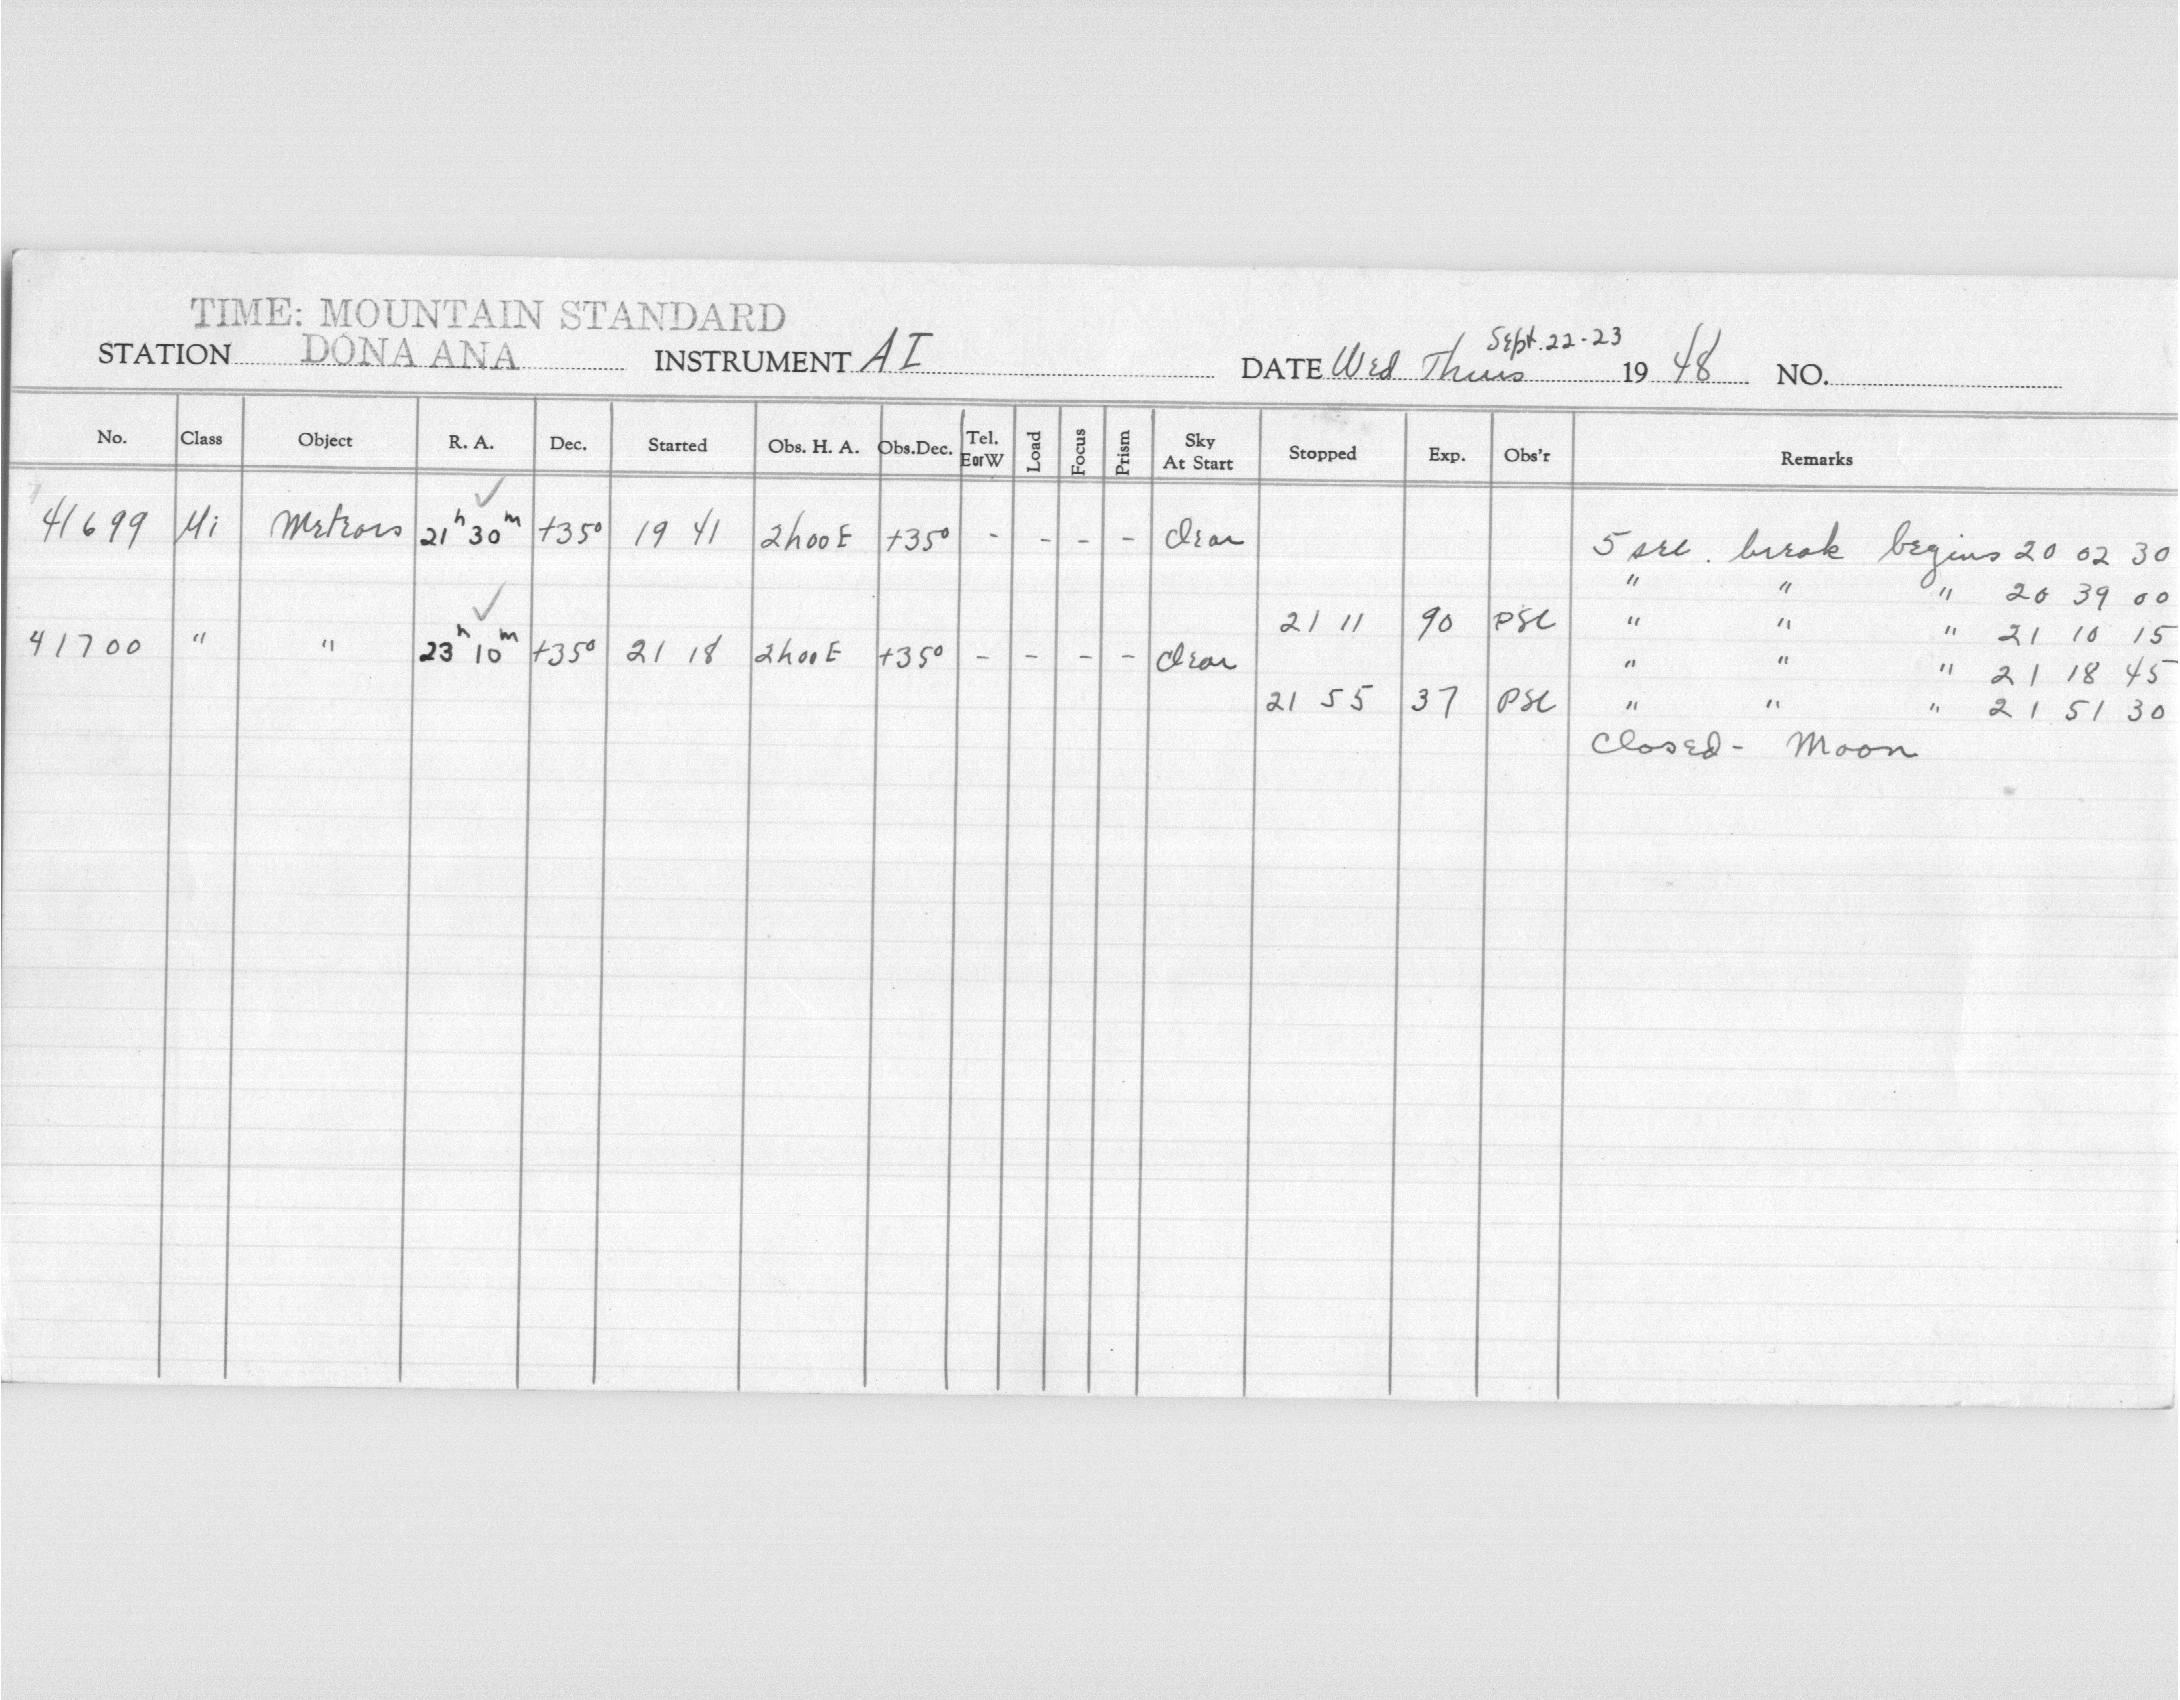 TIME: MOUNTAIN STANDARD
STATION DONA ANA INSTRUMENT AI DATE Wed Thurs Sept. 22-23 19 48 NO.
No. Class Object R. A. Dec. Started Obs. H. A. Obs.Dec. Tel. E or W Load Focus Prism Sky At Start Stopped Exp. Obs'r Remarks
41699 Mi Meteors 21h 30m +35° 19 41 2h00E +35° - - - - Clear 5 sec. break begins 20 02 30
" " " 20 39 00
21 11 90 PSC " " " 21 10 15
41700 " " 23h 10m +35° 21 18 2h00E +35° - - - - Clear " " " 21 18 45
21 55 37 PSC " " " 21 51 30
Closed - Moon